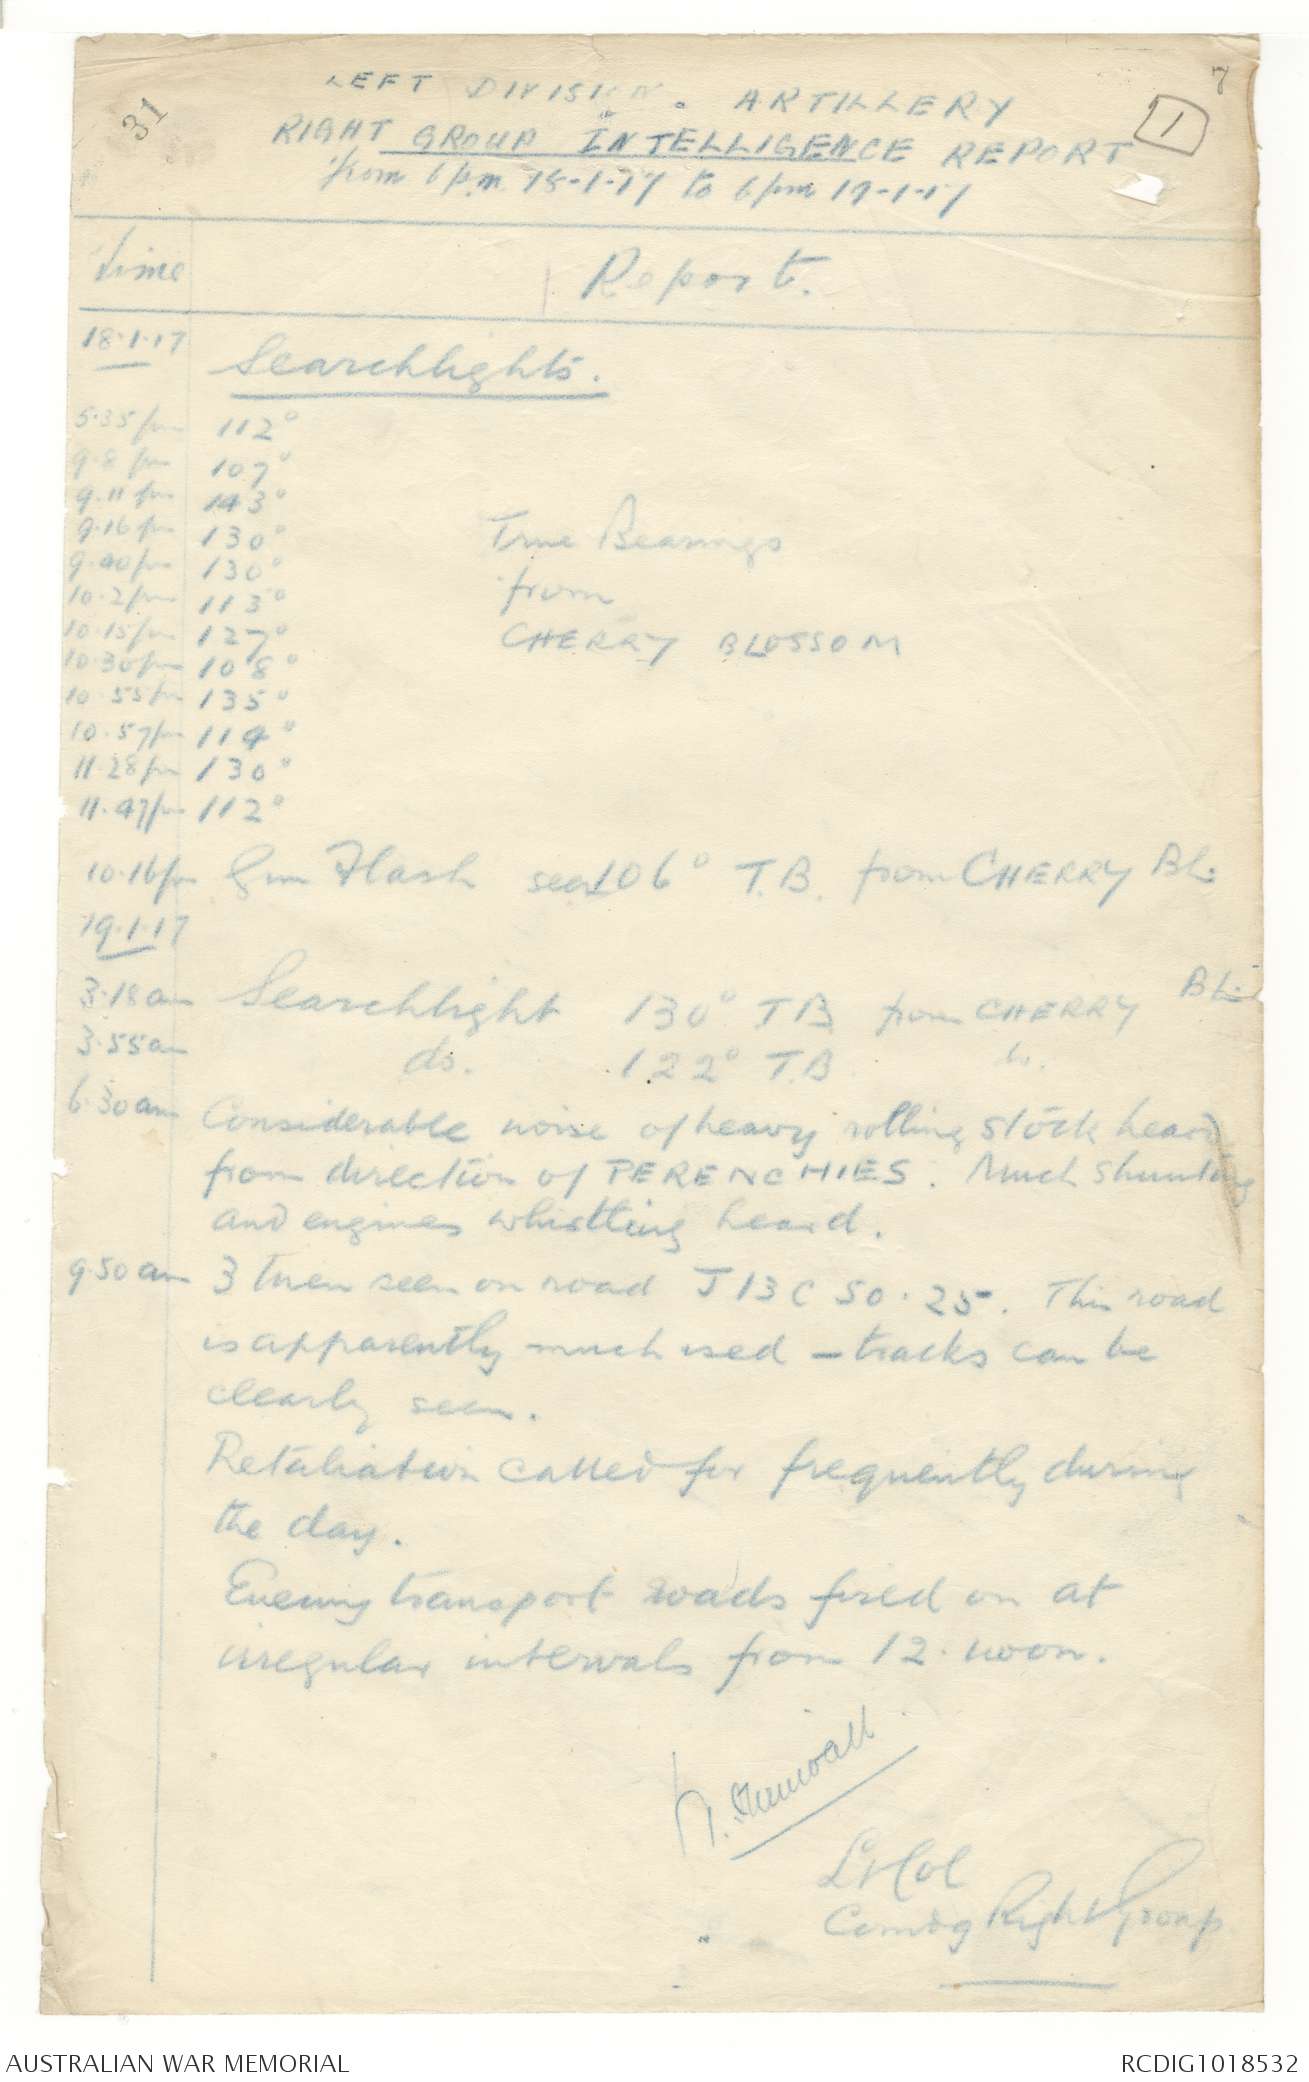 31
7
1
LEFT DIVISION. ARTILLERY
RIGHT GROUP INTELLIGENCE REPORT
from 6 pm 18-1-17 to 6 pm 19-1-17
Time Report.
18.1.17 Searchlights.
5.35 pm 112°
9.8 pm 107°
9.11 pm 143°
9.16 pm 130° True Bearings
9.40 pm 130° from
10.2 pm 113°
10.15 pm 127° CHERRY BLOSSOM
10.30 pm 108°
10.55 pm 135°
10.57 pm 114°
11.28 pm 130°
11.47 pm 112°
10.16 pm Gun Flash seen 106° T.B. from CHERRY BL.
19.1.17
3.18 am Searchlight 130° TB from CHERRY BL.
3.55 am do. 122° T.B
6.30 am Considerable noise of heavy rolling stock heard
from direction of PERENCHIES. Much shunting
and engines whistling heard.
9.50 am 3 men seen on road J 13 C 50.25. This road
is apparently much used - tracks can be
clearly seen.
Retaliation called for frequently during
the day.
Enemy transport roads fired on at
irregular intervals from 12. noon.
Lt Col
Comdg Right Group
AUSTRALIAN WAR MEMORIAL
RCDIG1018532